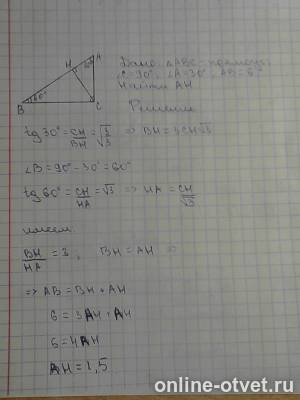 A
H
30°
B
60°
C
Дано: △ABC - прямоуг.
∠C=90°, ∠A=30°, AB=6
Найти AH
Решение
tg 30° = CH/BH =
∠B = 90° - 30° = 60°
tg 60° = CH/HA = √3 ⇒ HA = CH/√3
имеем
BH/HA = 3, BH = AH ⇒
⇒ AB = BH + AH
6 = 3AH + AH
6 = 4AH
AH = 1,5
online-otvet.ru